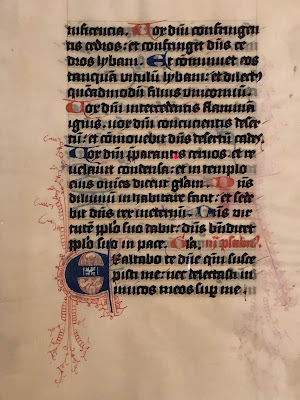 nificencia. Vox dñi confringen
tis cedros: et confringet dñs ce
dros lybani. Et cominuet eos
tanquā vitulū lybani: et dilect9
quēadmodū filius unicorniū.
Vox dñi intercidentis flammā
ignis: vox dñi concucientis deser
tū: et cōmovebit dñs desertū cades.
Vox dñi p̄parantis cervos: et re
velabit condensa: et in templo
eius omēs dicent gl̄am. Dñs
diluviū inhabitare facit: et sede
bit dñs rex in eternū. Dñs vir
tutē pp̄lo suo dabit: dñs bñdicet
pp̄lo suo in pace. Gl̄a. psalm9.
Exaltabo te dñe qm̄ susce
pisti me: nec delectasti in
imicos meos sup̄ me.